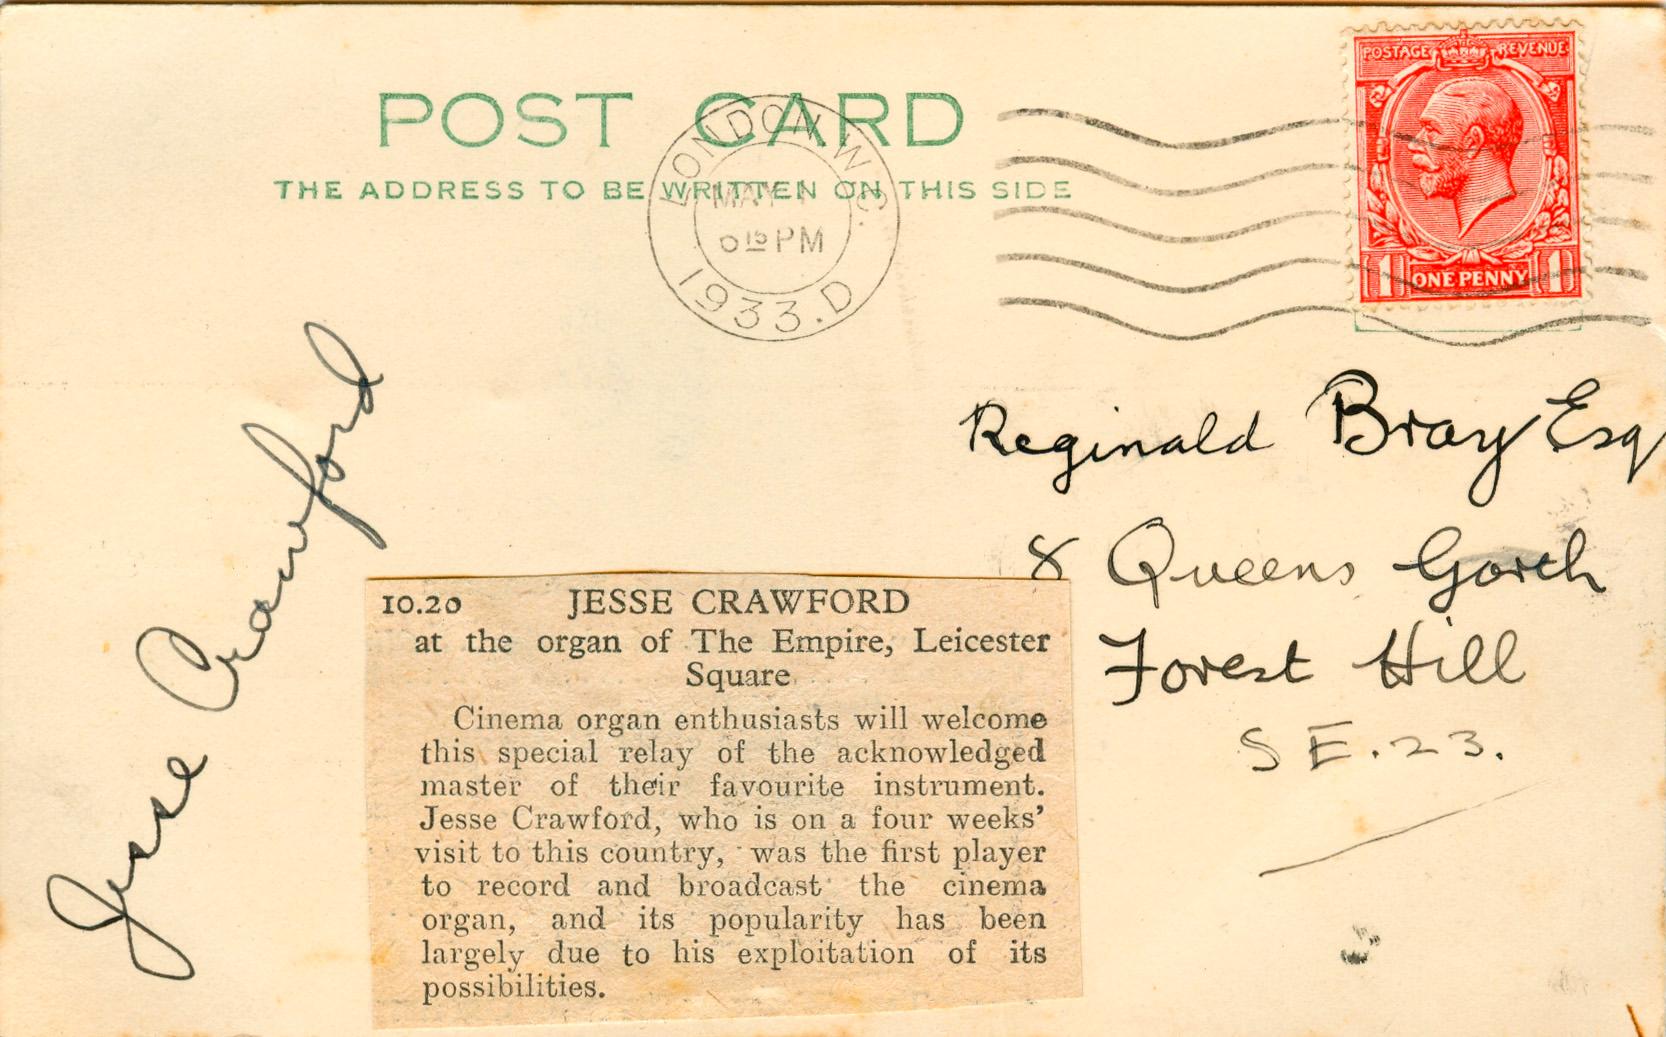 POST CARD
THE ADDRESS TO BE WRITTEN ON THIS SIDE
LONDON. W.C.
MAY 1
6 15 PM
1933.D
POSTAGE REVENUE
1 ONE PENNY 1
Jesse Crawford
Reginald Bray Esq
8 Queens Garth
Forest Hill
S E. 23.
10.20 JESSE CRAWFORD
at the organ of The Empire, Leicester
Square
Cinema organ enthusiasts will welcome
this special relay of the acknowledged
master of their favourite instrument.
Jesse Crawford, who is on a four weeks’
visit to this country, was the first player
to record and broadcast the cinema
organ, and its popularity has been
largely due to his exploitation of its
possibilities.